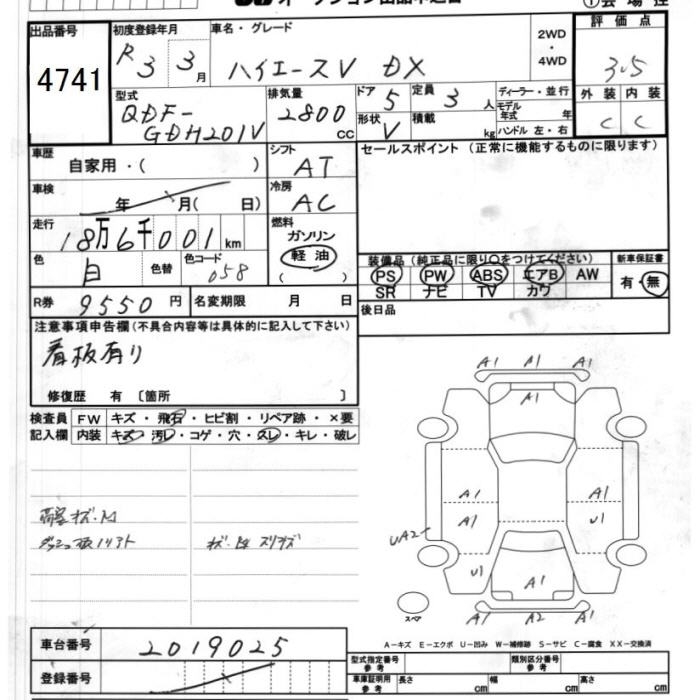 出品番号
4741
初度登録年月
R 3 3月
車名・グレード
ハイエースV DX
2WD
・
4WD
評価点
3.5
外装 内装
C C
型式
QDF-
GDH201V
排気量
2800 CC
ドア
5
定員
3 人
形状
V
積載
kg
ディーラー・並行
モデル年式 年
ハンドル 左・右
車歴
自家用・( )
シフト
AT
セールスポイント (正常に機能するものに限ります)
車検
年 月( 日)
冷房
AC
走行
18万6千001km
燃料
ガソリン
軽油
( )
色
白
色替
色コード
058
装備品 (純正品に限り○をつけてください)
PS PW ABS エアB AW
SR ナビ TV カワ
新車保証書
有・無
R券
9550円
名変期限 月 日
後日品
注意事項申告欄 (不具合内容等は具体的に記入して下さい)
看板有り
修復歴 有 〔箇所 〕
検査員
記入欄
FW キズ・飛石・ヒビ割・リペア跡・×要
内装 キズ・汚レ・コゲ・穴・スレ・キレ・破レ
A1 A1 A1
A1
A1 A1
A1 U1
UA2
U1
A1
A1 A2 A1
スペア
A-キズ E-エクボ U-凹み W-補修跡 S-サビ C-腐食 XX-交換済
車台番号
2019025
登録番号
型式指定番号
参考
類別区分番号
参考
車庫証明用
参考
長さ cm
幅 cm
高さ cm